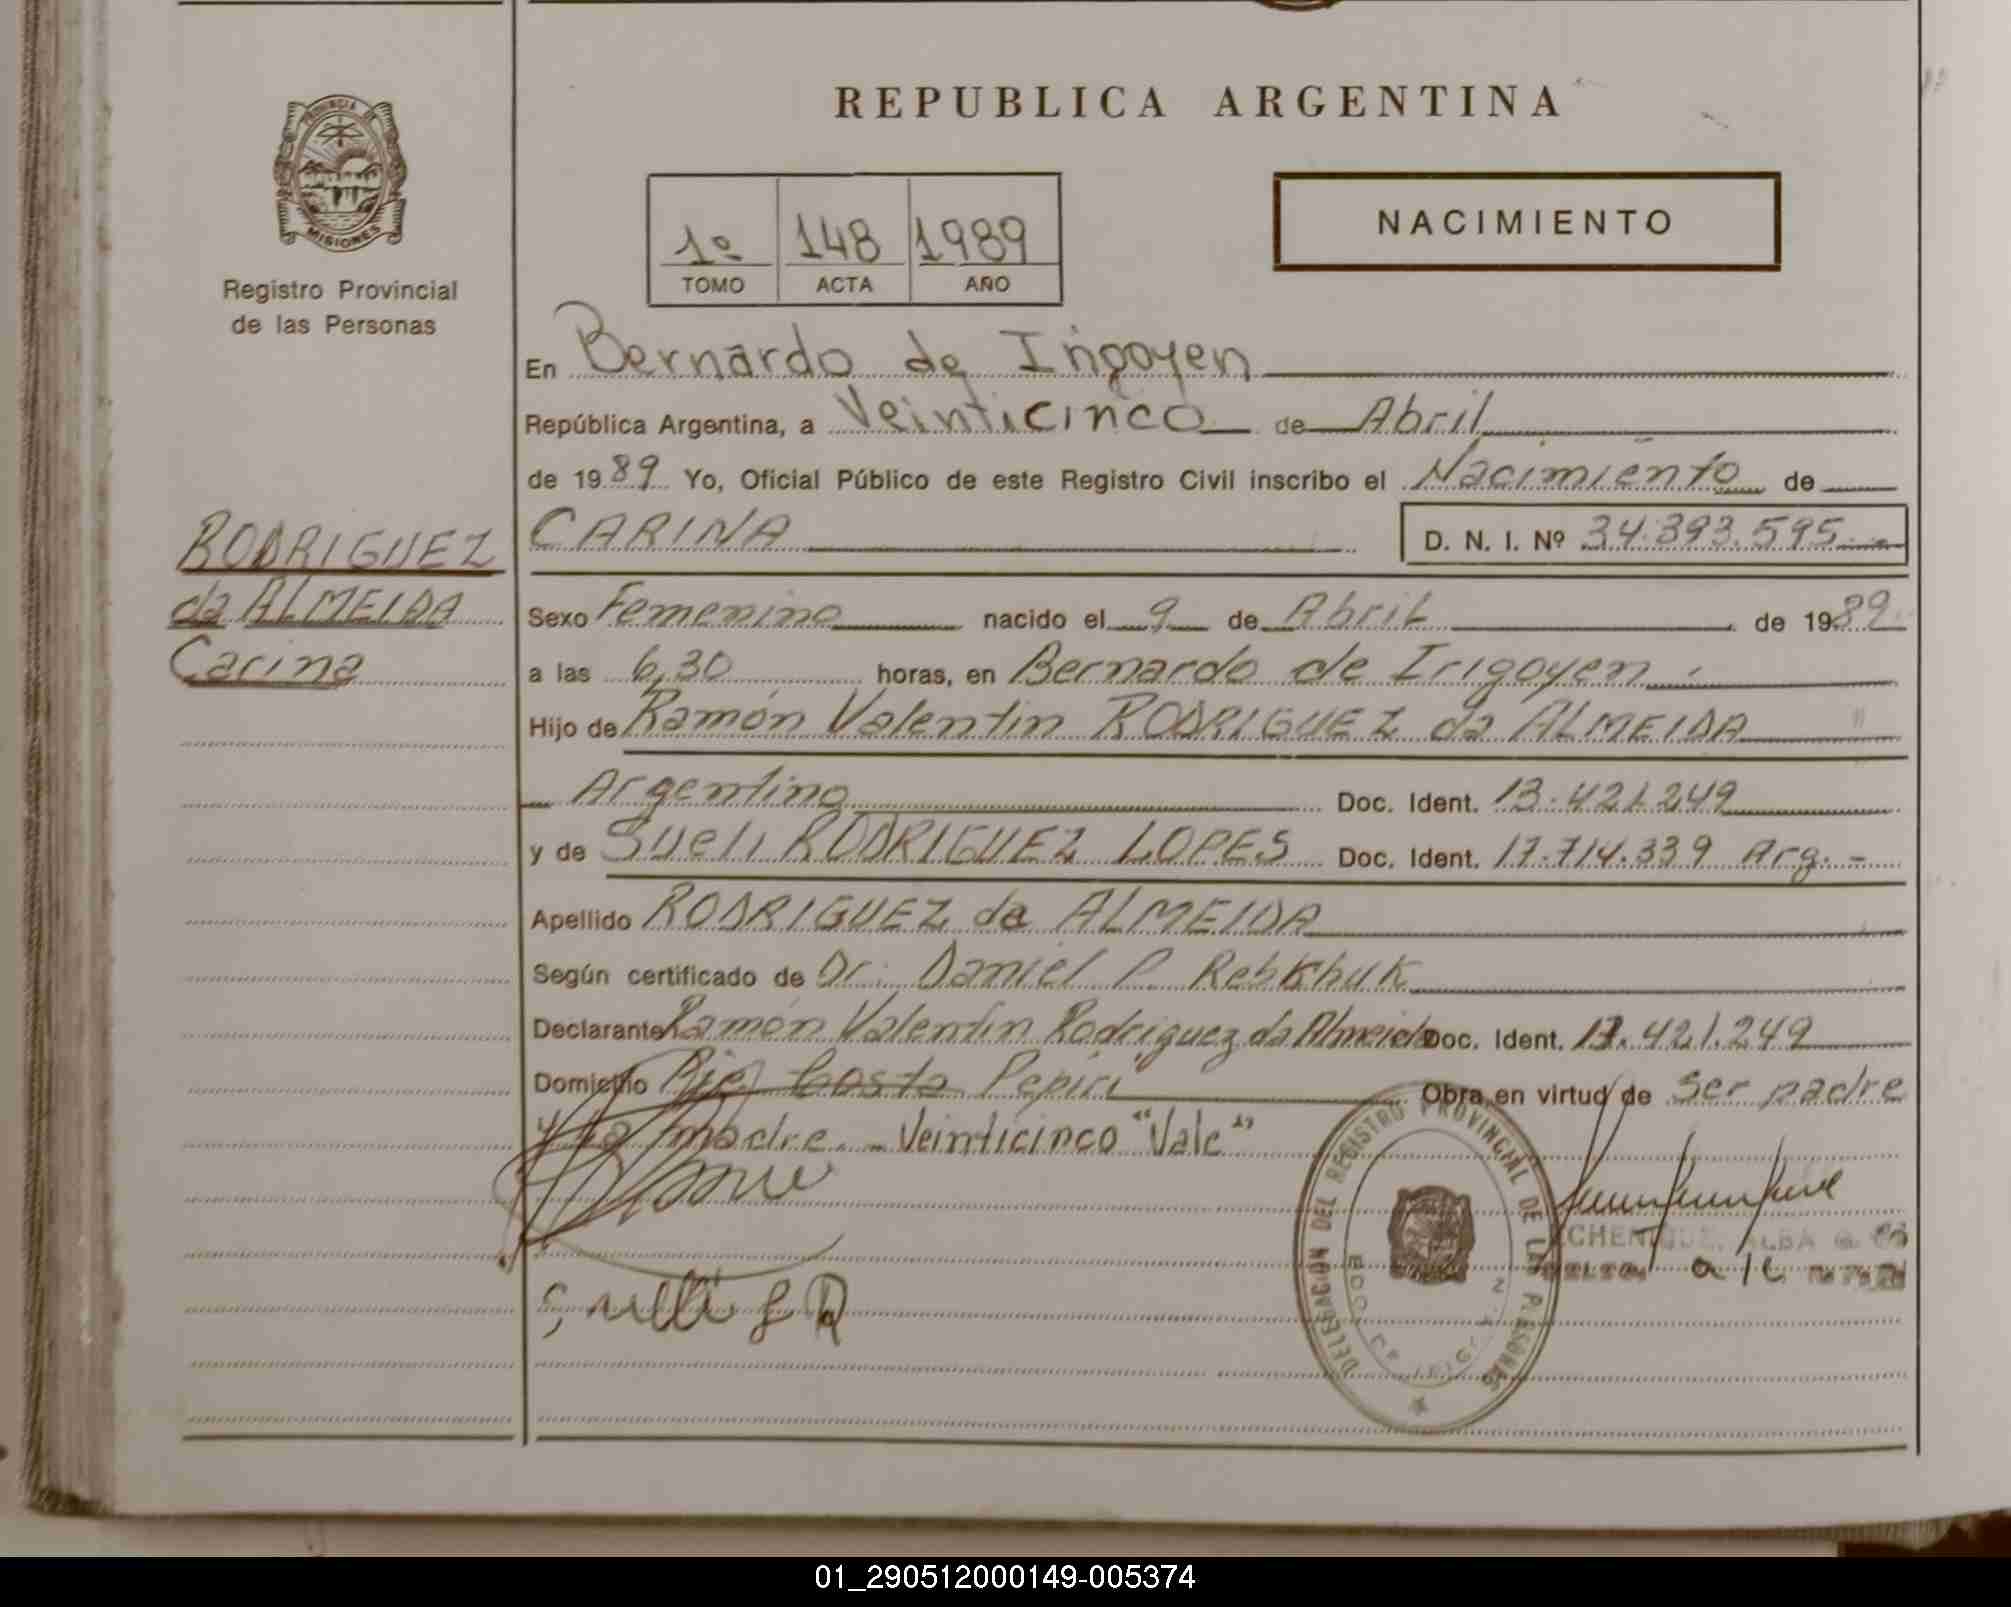 REPUBLICA ARGENTINA
PROVINCIA DE
MISIONES
Registro Provincial
de las Personas
1º 148 1989
TOMO ACTA AÑO
NACIMIENTO
En Bernardo de Irigoyen
República Argentina, a Veinticinco de Abril
de 1989 Yo, Oficial Público de este Registro Civil inscribo el Nacimiento de
RODRIGUEZ
da ALMEIDA
Carina
CARINA D. N. I. Nº 34.393.595
Sexo Femenino nacido el 9 de Abril de 1989
a las 6,30 horas, en Bernardo de Irigoyen
Hijo de Ramón Valentin RODRIGUEZ da ALMEIDA
Argentino Doc. Ident. 13.421.249
y de Sueli RODRIGUEZ LOPES Doc. Ident. 17.714.339 Arg.-
Apellido RODRIGUEZ da ALMEIDA
Según certificado de Dr. Daniel P.
Declarante Ramón Valentin Rodriguez da Almeida Doc. Ident. 13.421.249
Domicilio Pepiri Obra en virtud de Ser padre
y la madre. - Veinticinco "Vale"
DELEGACION DEL REGISTRO PROVINCIAL DE LAS PERSONAS
ALBA
a/c
01_290512000149-005374